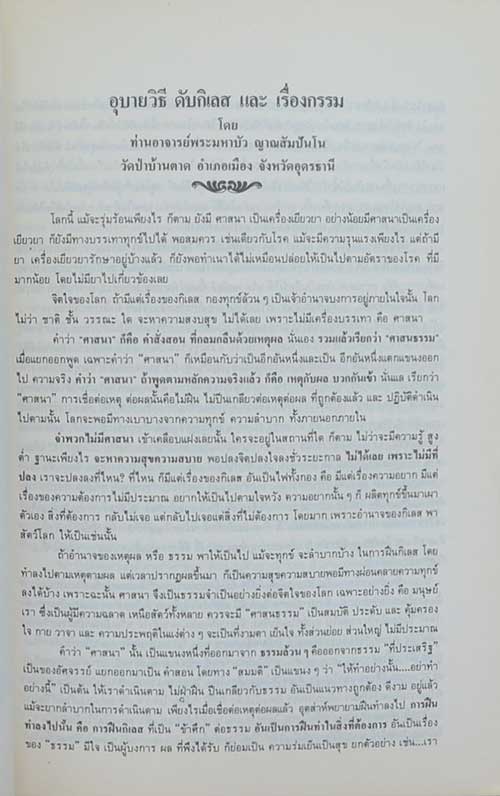 อุบายวิธี ดับกิเลส และ เรื่องกรรม
โดย
ท่านอาจารย์พระมหาบัว ญาณสัมปันโน
วัดป่าบ้านตาด อำเภอเมือง จังหวัดอุดรธานี
โลกนี้ แม้จะรุ่มร้อนเพียงไร ก็ตาม ยังมี ศาสนา เป็นเครื่องเยียวยา อย่างน้อยมีศาสนาเป็นเครื่อง
เยียวยา ก็ยังมีทางบรรเทาทุกข์ไปได้ พอสมควร เช่นเดียวกับโรค แม้จะมีความรุนแรงเพียงไร แต่ถ้ามี
ยา เครื่องเยียวยารักษาอยู่บ้างแล้ว ก็ยังพอทำเนาได้ไม่เหมือนปล่อยให้เป็นไปตามอัตราของโรค ที่มี
มากน้อย โดยไม่มียาไปเกี่ยวข้องเลย
จิตใจของโลก ถ้ามีแต่เรื่องของกิเลส กองทุกข์ล้วน ๆ เป็นเจ้าอำนาจบงการอยู่ภายในใจนั้น โลก
ไม่ว่า ชาติ ชั้น วรรณะ ใด จะหาความสงบสุข ไม่ได้เลย เพราะไม่มีเครื่องบรรเทา คือ ศาสนา
คำว่า "ศาสนา" ก็คือ คำสั่งสอน ที่กลมกลืนด้วยเหตุผล นั่นเอง รวมแล้วเรียกว่า "ศาสนธรรม"
เมื่อแยกออกพูด เฉพาะคำว่า "ศาสนา" ก็เหมือนกับว่าเป็นอีกอันหนึ่งและเป็น อีกอันหนึ่งแตกแขนงออก
ไป ความจริง คำว่า "ศาสนา" ถ้าพูดตามหลักความจริงแล้ว ก็คือ เหตุกับผล บวกกันเข้า นั่นแล เรียกว่า
"ศาสนา" การเชื่อต่อเหตุ ต่อผลนั้นคือไม่ฝืน ไม่ปีนเกลียวต่อเหตุต่อผล ที่ถูกต้องแล้ว และ ปฏิบัติดำเนิน
ไปตามนั้น โลกจะพอมีทางเบาบางจากความทุกข์ ความลำบาก ทั้งภายนอกภายใน
จำพวกไม่มีศาสนา เข้าเคลือบแฝงเลยนั้น ใครจะอยู่ในสถานที่ใด ก็ตาม ไม่ว่าจะมีความรู้ สูง
ต่ำ ฐานะเพียงไร จะหาความสุขความสบาย พอปลงจิตปลงใจลงชั่วระยะกาล ไม่ได้เลย เพราะไม่มีที่
ปลง เราจะปลงลงที่ไหน? ที่ไหน ก็มีแต่เรื่องของกิเลส อันเป็นไฟทั้งกอง คือ มีแต่เรื่องความอยาก มีแต่
เรื่องของความต้องการไม่มีประมาณ อยากให้เป็นไปตามใจหวัง ความอยากนั้น ๆ ก็ ผลิตทุกข์ขึ้นมาเผา
ตัวเอง สิ่งที่ต้องการ กลับไม่เจอ แต่กลับไปเจอแต่สิ่งที่ไม่ต้องการ โดยมาก เพราะอำนาจของกิเลส พา
สัตว์โลก ให้เป็นเช่นนั้น
ถ้าอำนาจของเหตุผล หรือ ธรรม พาให้เป็นไป แม้จะทุกข์ จะลำบากบ้าง ในการฝืนกิเลส โดย
ทำลงไปตามเหตุตามผล แต่เวลาปรากฏผลขึ้นมา ก็เป็นความสุขความสบายพอมีทางผ่อนคลายความทุกข์
ลงได้บ้าง เพราะฉะนั้น ศาสนา จึงเป็นธรรมจำเป็นอย่างยิ่งต่อจิตใจของโลก เฉพาะอย่างยิ่ง คือ มนุษย์
เรา ซึ่งเป็นผู้มีความฉลาด เหนือสัตว์ทั้งหลาย ควรจะมี "ศาสนธรรม" เป็นสมบัติ ประดับ และ คุ้มครอง
ใจ กาย วาจา และ ความประพฤติในแง่ต่าง ๆ จะเป็นที่งามตา เย็นใจ ทั้งส่วนย่อย ส่วนใหญ่ ไม่มีประมาณ
คำว่า "ศาสนา" นั้น เป็นแขนงหนึ่งที่ออกมาจาก ธรรมล้วน ๆ คือออกจากธรรม "ที่ประเสริฐ"
เป็นของอัศจรรย์ แยกออกมาเป็น คำสอน โดยทาง "สมมติ" เป็นแขนง ๆ ว่า "ให้ทำอย่างนั้น....อย่าทำ
อย่างนี้" เป็นต้น ให้เราดำเนินตาม ไม่ฝ่าฝืน ปีนเกลียวกับธรรม อันเป็นแนวทางถูกต้อง ดีงาม อยู่แล้ว
แม้จะยากลำบากในการดำเนินตาม เพียงไรเมื่อเชื่อต่อเหตุต่อผลแล้ว อุตส่าห์พยายามฝืนทำลงไป การฝืน
ทำลงไปนั้น คือ การฝืนกิเลส ที่เป็น "ข้าศึก" ต่อธรรม อันเป็นการฝืนทำในสิ่งที่ต้องการ อันเป็นเรื่อง
ของ "ธรรม" มีใจ เป็นผู้บงการ ผล ที่พึงได้รับ ก็ย่อมเป็น ความร่มเย็นเป็นสุข ยกตัวอย่าง เช่น...เรา